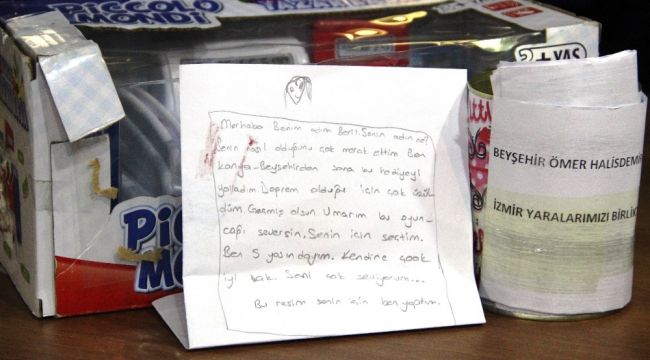 PICCOLO
MONDI
Merhaba Benim adım Beril. Senin adın ne?
Senin nasıl olduğunu çok merak ettim Ben
Konya-Beyşehirden sana bu hediyeyi
yolladım Deprem olduğu için çok üzül
düm Geçmiş olsun Umarım bu oyun-
cağı seversin. Senin için seçtim.
Ben 5 yaşındayım. Kendine çook
iyi bak. Seni çok seviyorum...
Bu resim senin için ben yaptım.
2+ YAŞ
BEYŞEHİR ÖMER HALİSDEMİR
İZMİR YARALARIMIZI BİRLİK
MONDI